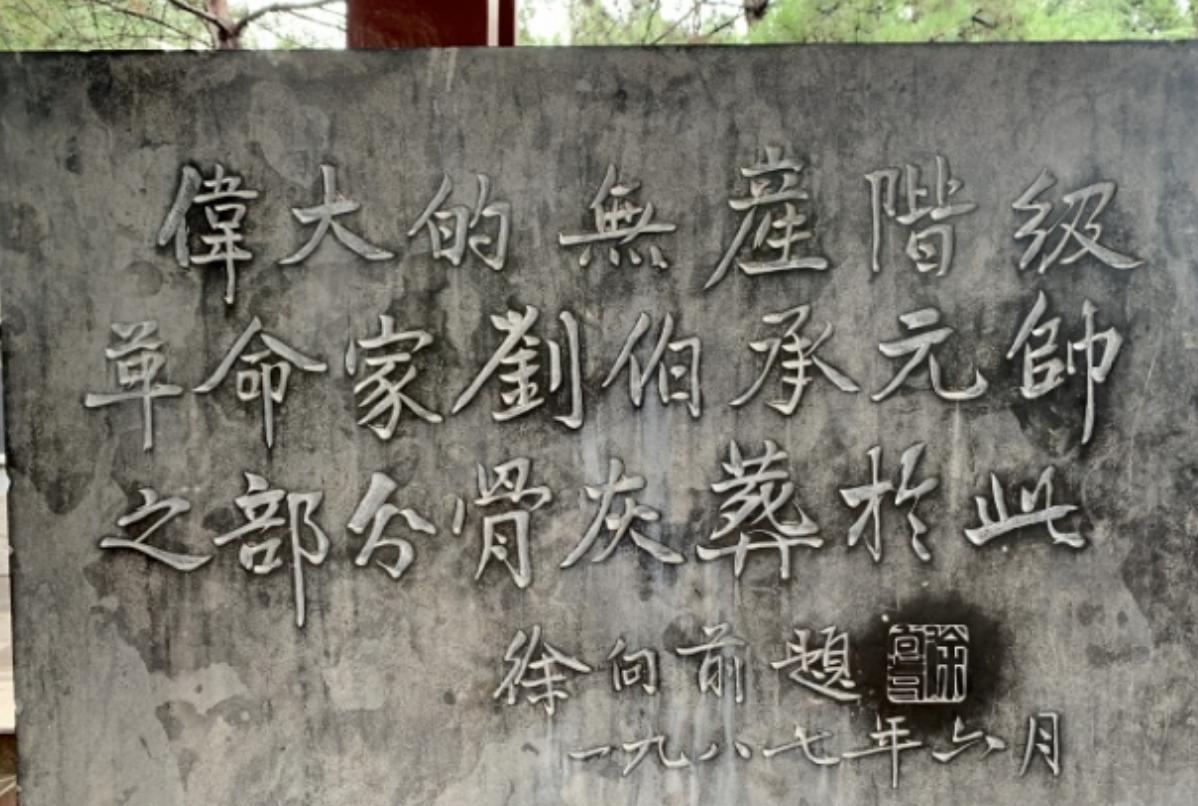 偉大的無產階級
革命家劉伯承元帥
之部分骨灰葬於此
徐向前題
一九八七年六月